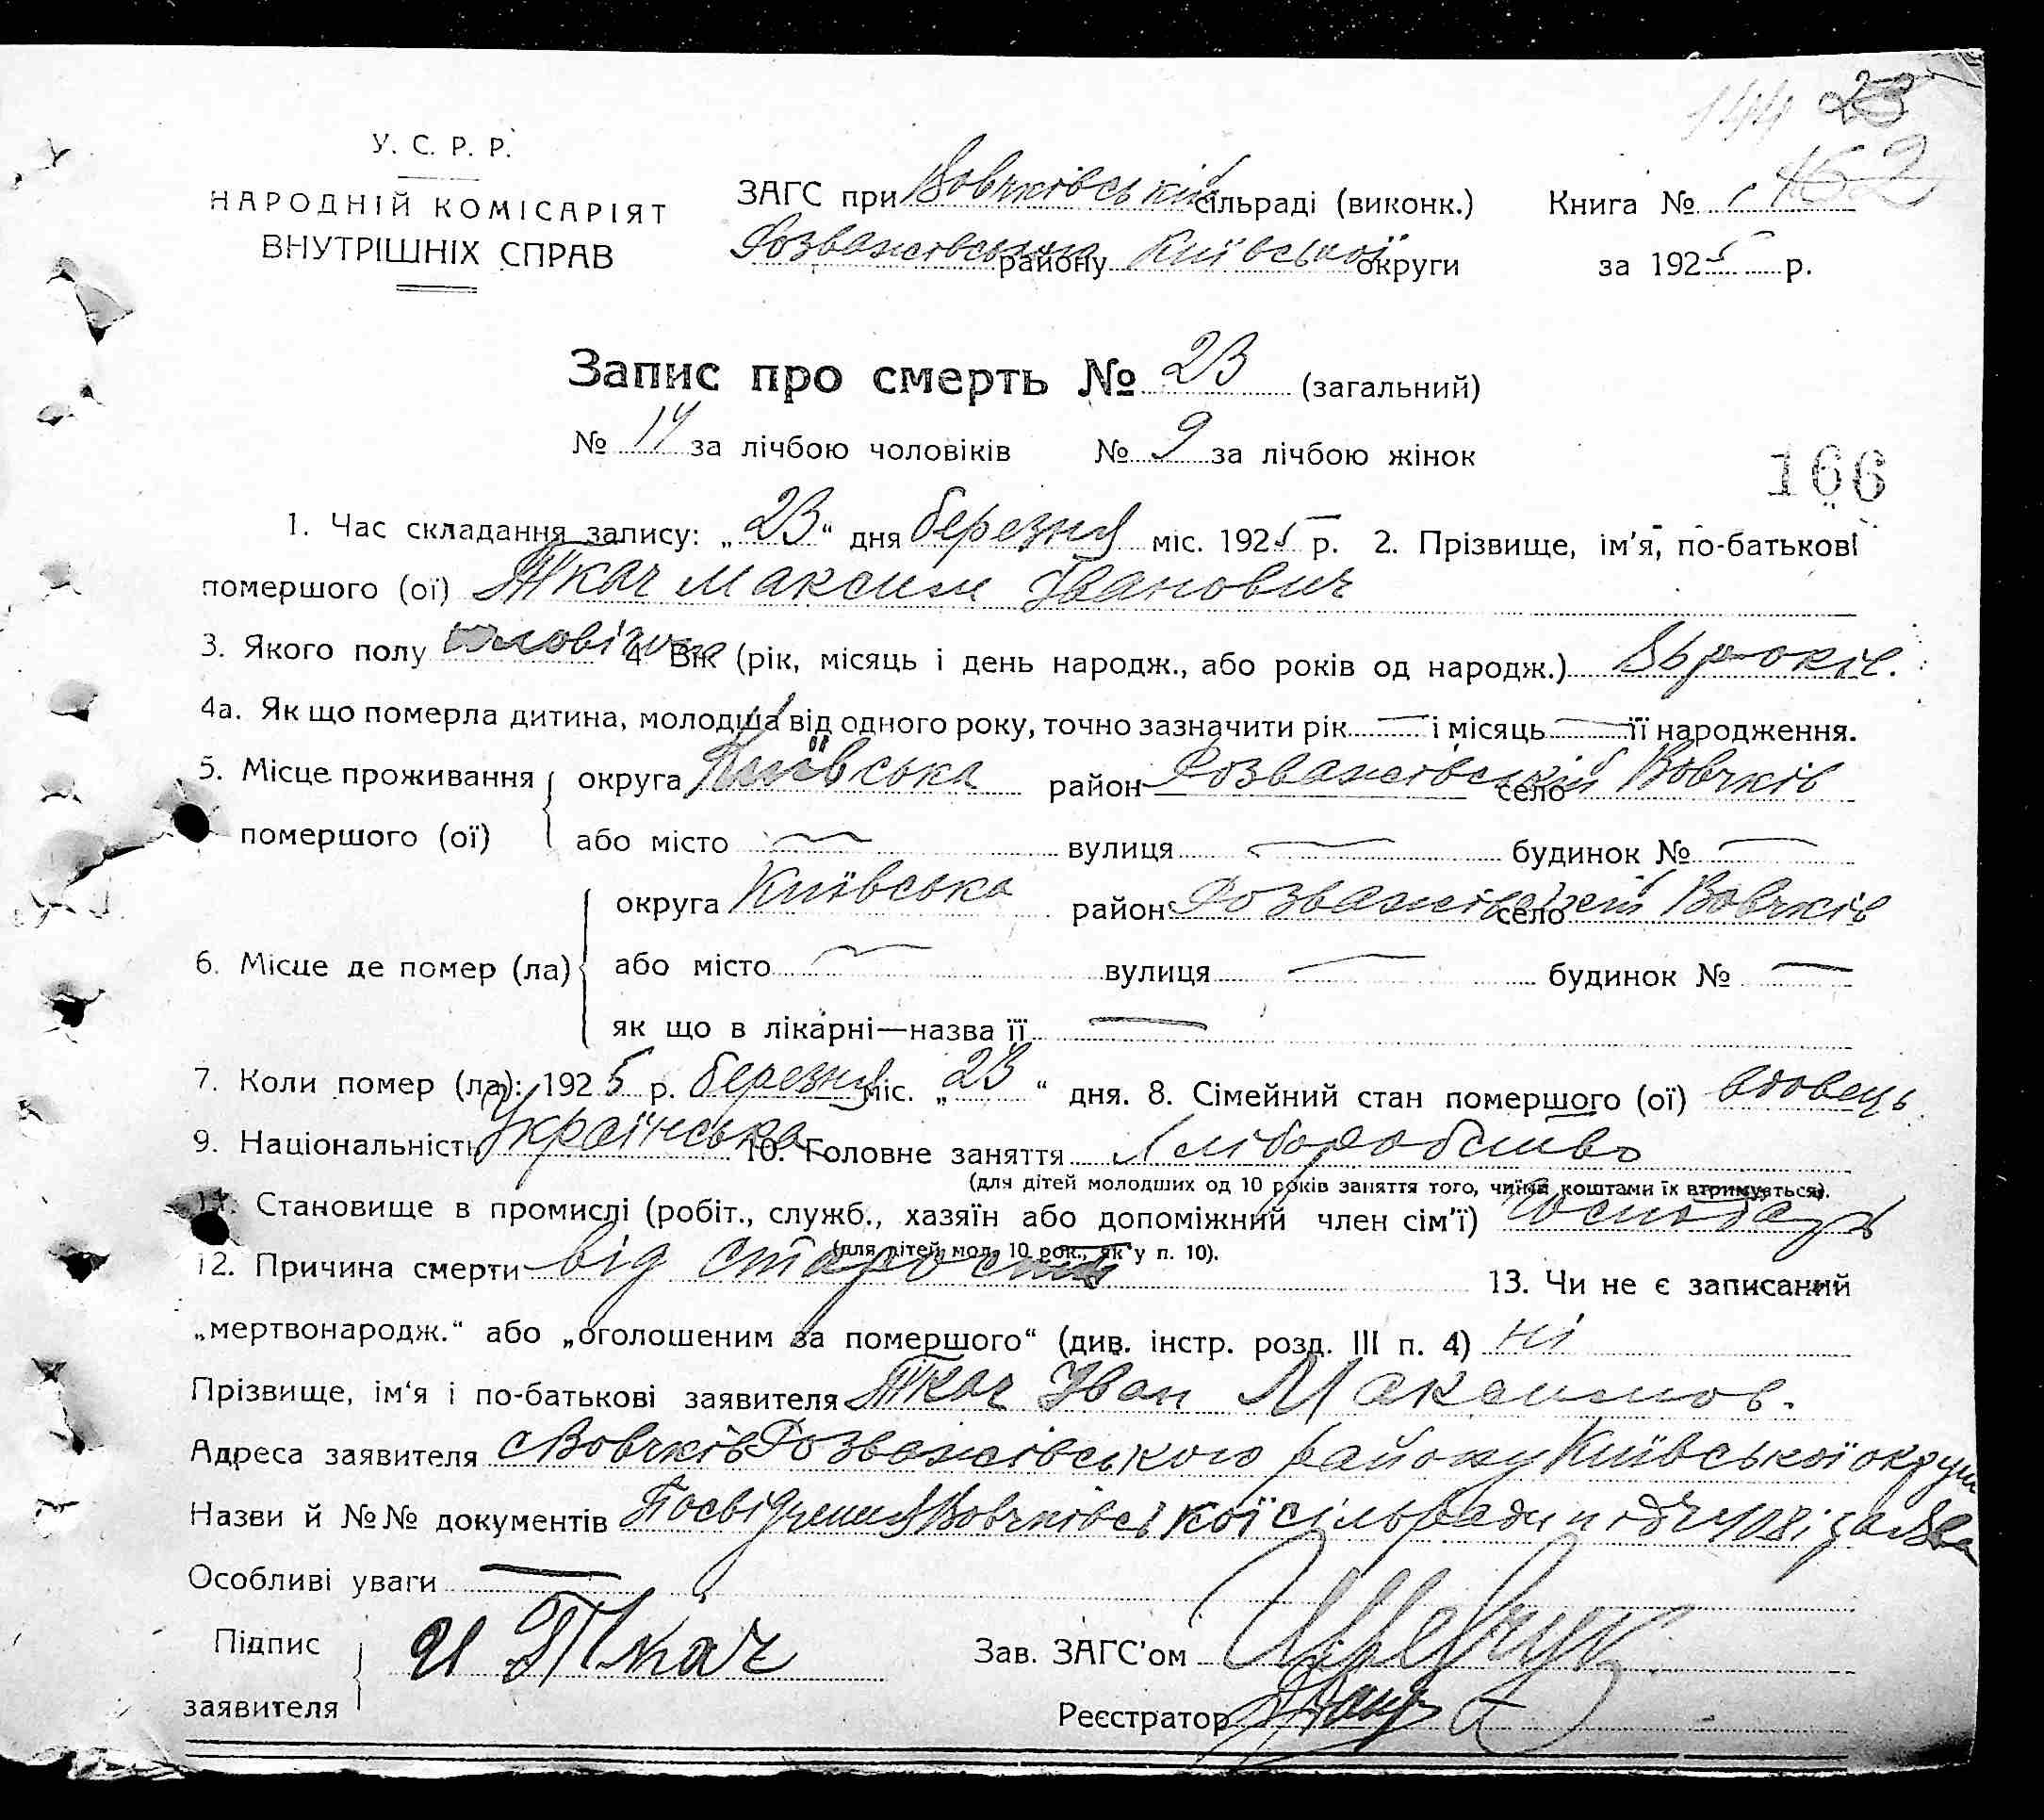 144 23
162
У. С. Р. Р.
НАРОДНІЙ КОМІСАРІЯТ
ВНУТРІШНІХ СПРАВ
ЗАГС при Вовчківській сільраді (виконк.)
Розважівського району Київської округи
Книга № 1
за 1925 р.
Запис про смерть № 23 (загальний)
№ 14 за лічбою чоловіків № 9 за лічбою жінок
166
1. Час складання запису: „23“ дня березня міс. 1925 р. 2. Прізвище, ім'я, по-батькові
помершого (ої) Ткач Максим Іванович
3. Якого полу чоловічого 4. Вік (рік, місяць і день народж., або років од народж.) років.
4а. Як що померла дитина, молодша від одного року, точно зазначити рік — і місяць — її народження.
5. Місце проживання помершого (ої) округа Київська район Розважівський село Вовчків
або місто — вулиця — будинок № —
6. Місце де помер (ла) округа Київська район Розважівський село Вовчків
або місто — вулиця — будинок № —
як що в лікарні—назва її —
7. Коли помер (ла): 1925 р. березня міс. „23“ дня. 8. Сімейний стан помершого (ої) вдовець
9. Національність Українська 10. Головне заняття Хліборобство
(для дітей молодших од 10 років заняття того, чиїми коштами їх втримується).
11. Становище в промислі (робіт., служб., хазяїн або допоміжний член сім'ї) Господарь
(для дітей мол. 10 рок., як у п. 10).
12. Причина смерти від старости 13. Чи не є записаний
„мертвонародж.“ або „оголошеним за помершого“ (див. інстр. розд. III п. 4) ні
Прізвище, ім'я і по-батькові заявителя Ткач Іван Максимов.
Адреса заявителя с Вовчків Розважівського району Київської округи
Назви й №№ документів Посвідчення Вовчківської сільради під
Особливі уваги —
Підпис заявителя И Ткач
Зав. ЗАГС'ом Шевчук
Реєстратор